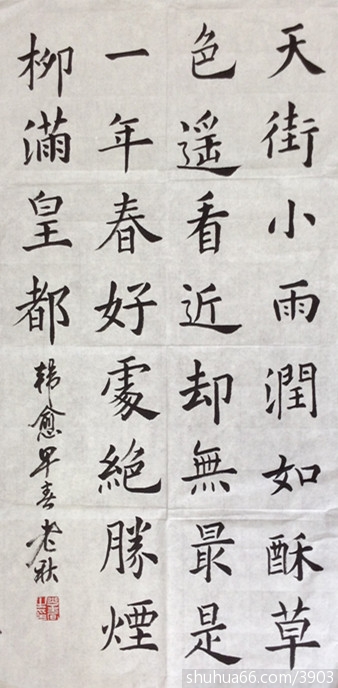 天街小雨潤如酥草
色遥看近却無最是
一年春好處絕勝煙
柳滿皇都
韓愈早春 老秋
shuhua66.com/3903